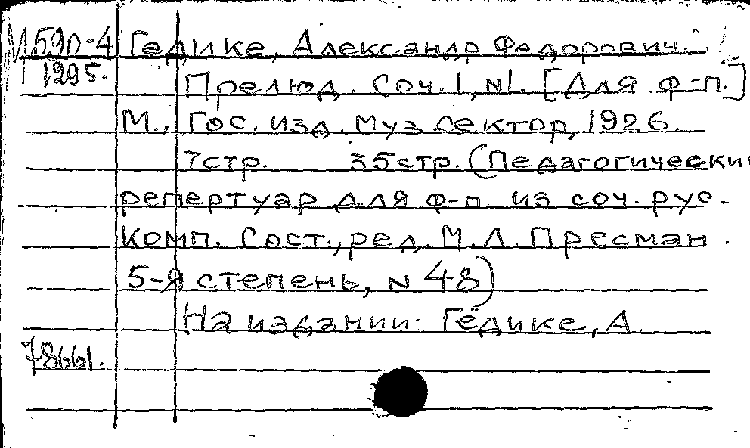 М590-4 Гедике, Александр Федорович.
1295. Прелюд. Соч. 1, N1. [Для ф-п.]
М., Гос. изд. Муз сектор, 1926.
7стр. 35стр. (Педагогический
репертуар для ф-п. из соч. рус.
комп. Сост., ред. М.Л. Пресман.
5-я степень, N 48)
На издании: Гедике, А.
78661.